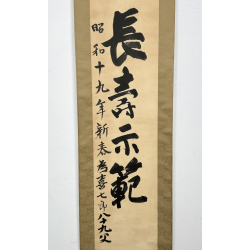 長壽示範
昭和十九年新春為喜七郎八十九父